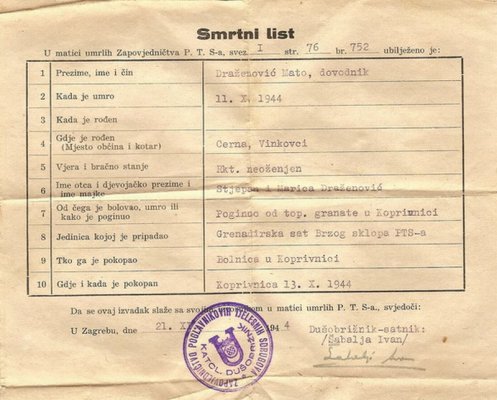 Smrtni list
U matici umrlih Zapovjedničtva P. T. S-a, svez. I str. 76 br. 752 ubilježeno je:
1 Prezime, ime i čin Draženović Mato, dovodnik
2 Kada je umro 11. X. 1944
3 Kada je rođen
4 Gdje je rođen (Mjesto obćina i kotar) Cerna, Vinkovci
5 Vjera i bračno stanje Rkt. neoženjen
6 Ime otca i djevojačko prezime i ime majke Stjepan i Marica Draženović
7 Od čega je bolovao, umro ili kako je poginuo Poginuo od top. granate u Koprivnici
8 Jedinica kojoj je pripadao Grenadirska sat Brzog sklopa PTS-a
9 Tko ga je pokopao Bolnica u Koprivnici
10 Gdje i kada je pokopan Koprivnica 13. X. 1944
Da se ovaj izvadak slaže sa svojim u matici umrlih P. T. S-a, svjedoči:
U Zagrebu, dne 21. 194 4
Dušobrižnik-satnik:
/Šabalja Ivan/
ZAPOVJEDNIČTVO POGLAVNIKOVIH TJELESNIH SDRUGOVA
KATOL. DUŠOBRIŽNIK